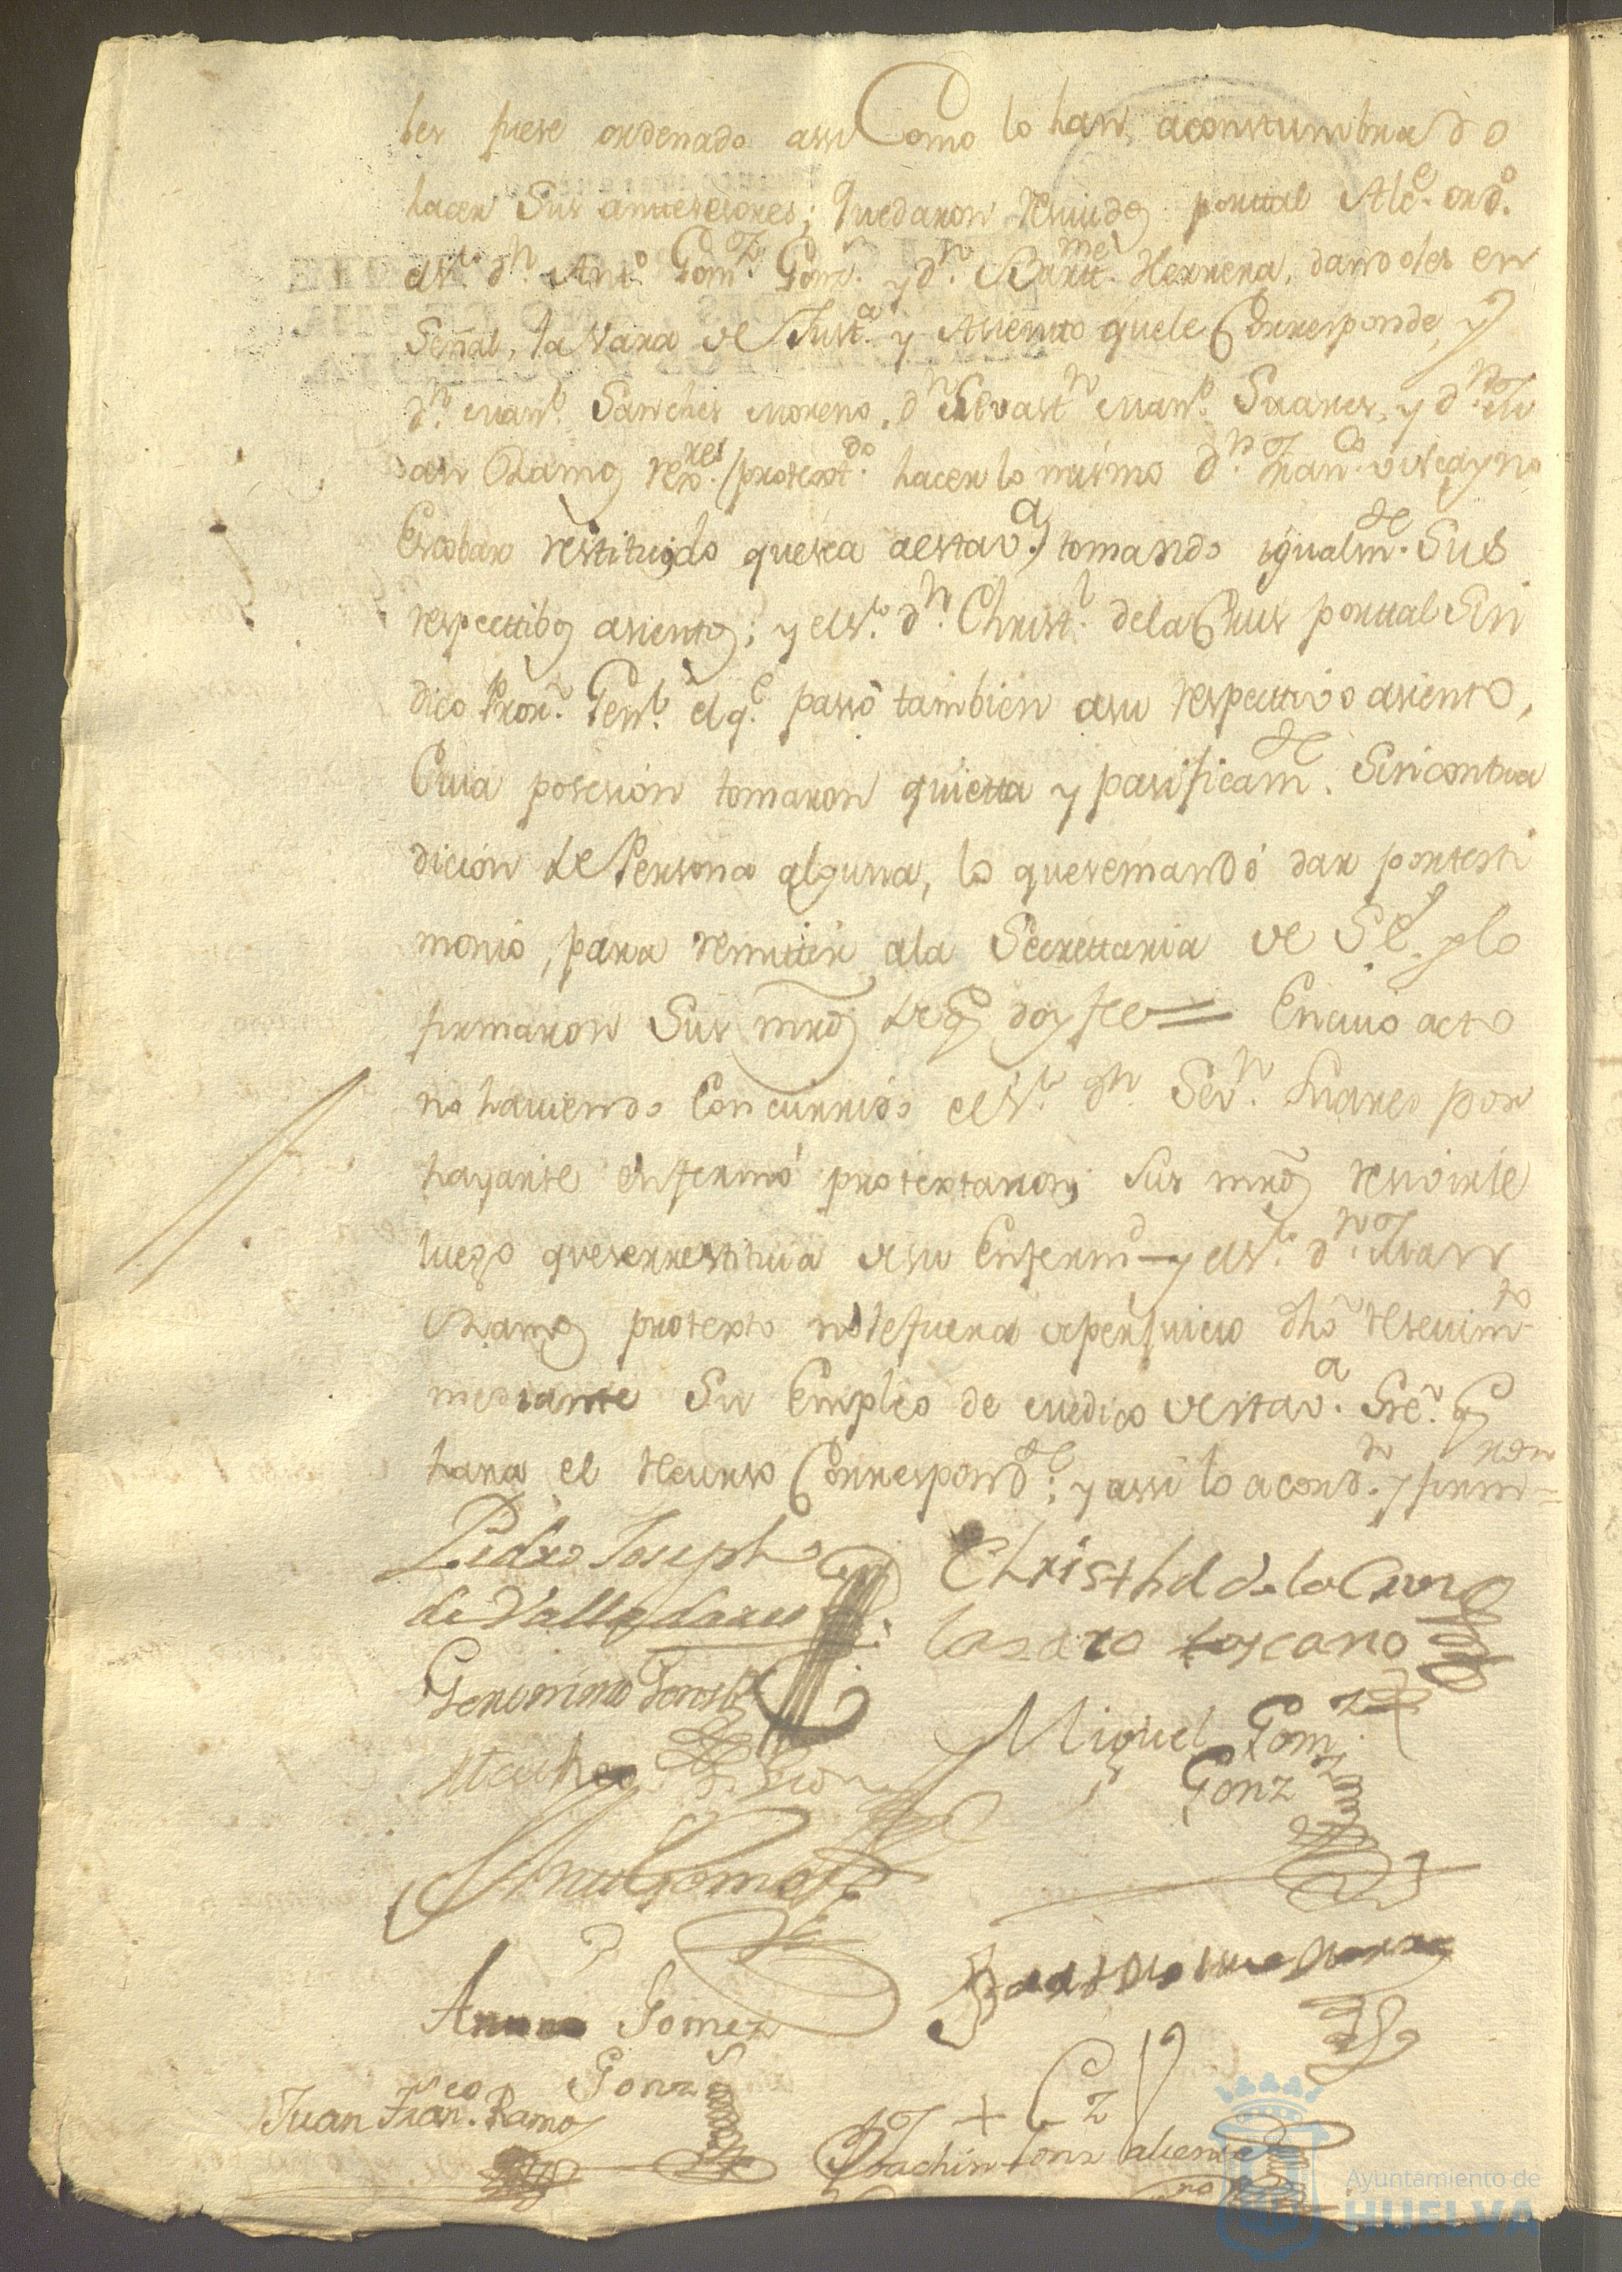 les fuese ordenado assi Como lo han aconstumbrado
hacer Sus antesesores; quedaron resividos por tal Alce. ordo.
el Sr. dn. Anto. Gomz. Gonz. y dn. Bartme. Herrera, dandoles en
Señal, la Vara de Justa. y Asiento que le Corresponde, y
dn. Manl. Sanches Moreno, dn. Sevastn. Manl. Suares, y dn. Ju
an Ramos rexres. (protextdo. hacer lo mismo dn. Franco. Viscayno
Escobar restituydo que sea a esta va.) tomando igualmte. Sus
respecttibos asientos; y el Sr. dn. Christl. de la Crus por tal Sin
dico Pror. Genl. el qe. passó tambien a su respectivo asiento,
Cuia posesion tomaron quietta y pasificamte. Sin contra
dicion de Persona alguna, lo que se mandó dar por testi
monio, para remitir a la Secrettaria de S. E. y lo
firmaron Sus mrds. de q doy fee = En cuio acto
no haviendo Concurrido el Sr. dn. Sevn. Suares por
hayarse enfermo protextaron Sus mrds. resivirle
luego que se rrestituia de su Enfermd. y el Sr. dn. Juan
Ramos protexto no le fuera de perjuicio dho resevimto.
mediante Su Empleo de Medico de esta va. Sre. q
hara el recurso Correspondte.; y assi lo acordn. y firmaron =
Pedro Joseph
de Valladares
Christhl de la Cruz
Lasaro toscano
Geronimo
Miguel Gomz
Gonz
Matheo
Gomez
Bartolome Herrera
Gomez
Gonz
Juan Franco. Ramos
Joachin Gonz
Ayuntamiento de
HUELVA